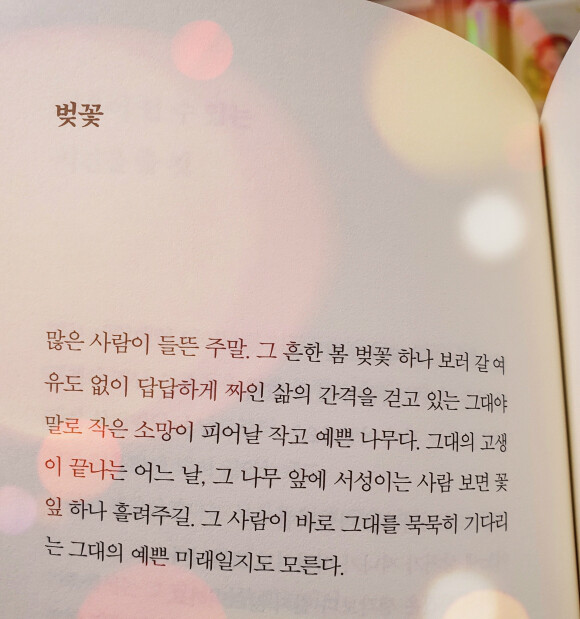 벚꽃
많은 사람이 들뜬 주말. 그 흔한 봄 벚꽃 하나 보러 갈 여
유도 없이 답답하게 짜인 삶의 간격을 걷고 있는 그대야
말로 작은 소망이 피어날 작고 예쁜 나무다. 그대의 고생
이 끝나는 어느 날, 그 나무 앞에 서성이는 사람 보면 꽃
잎 하나 흘려주길. 그 사람이 바로 그대를 묵묵히 기다리
는 그대의 예쁜 미래일지도 모른다.